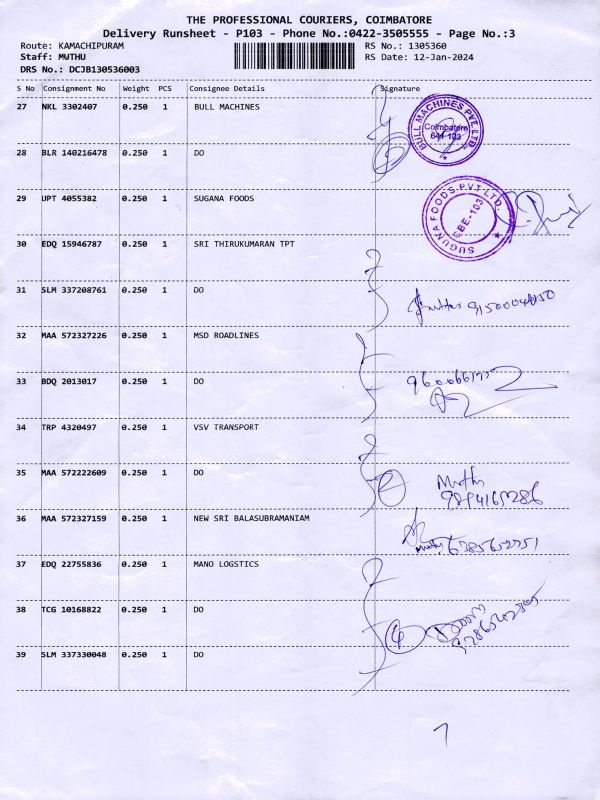 THE PROFESSIONAL COURIERS, COIMBATORE
Delivery Runsheet - P103 - Phone No.:0422-3505555 - Page No.:3
Route: KAMACHIPURAM RS No.: 1305360
Staff: MUTHU RS Date: 12-Jan-2024
DRS No.: DCJB130536003
S No Consignment No Weight PCS Consignee Details Signature
27 NKL 3302407 0.250 1 BULL MACHINES
BULL MACHINES PVT. LTD
Coimbatore
641 103
28 BLR 140216478 0.250 1 DO
29 UPT 4055382 0.250 1 SUGANA FOODS
SUGUNA FOODS PVT LTD.
CBE-103
30 EDQ 15946787 0.250 1 SRI THIRUKUMARAN TPT
31 SLM 337208761 0.250 1 DO
32 MAA 572327226 0.250 1 MSD ROADLINES
33 BDQ 2013017 0.250 1 DO
34 TRP 4320497 0.250 1 VSV TRANSPORT
35 MAA 572222609 0.250 1 DO
Muthu
36 MAA 572327159 0.250 1 NEW SRI BALASUBRAMANIAM
37 EDQ 22755836 0.250 1 MANO LOGSTICS
38 TCG 10168822 0.250 1 DO
39 SLM 337330048 0.250 1 DO